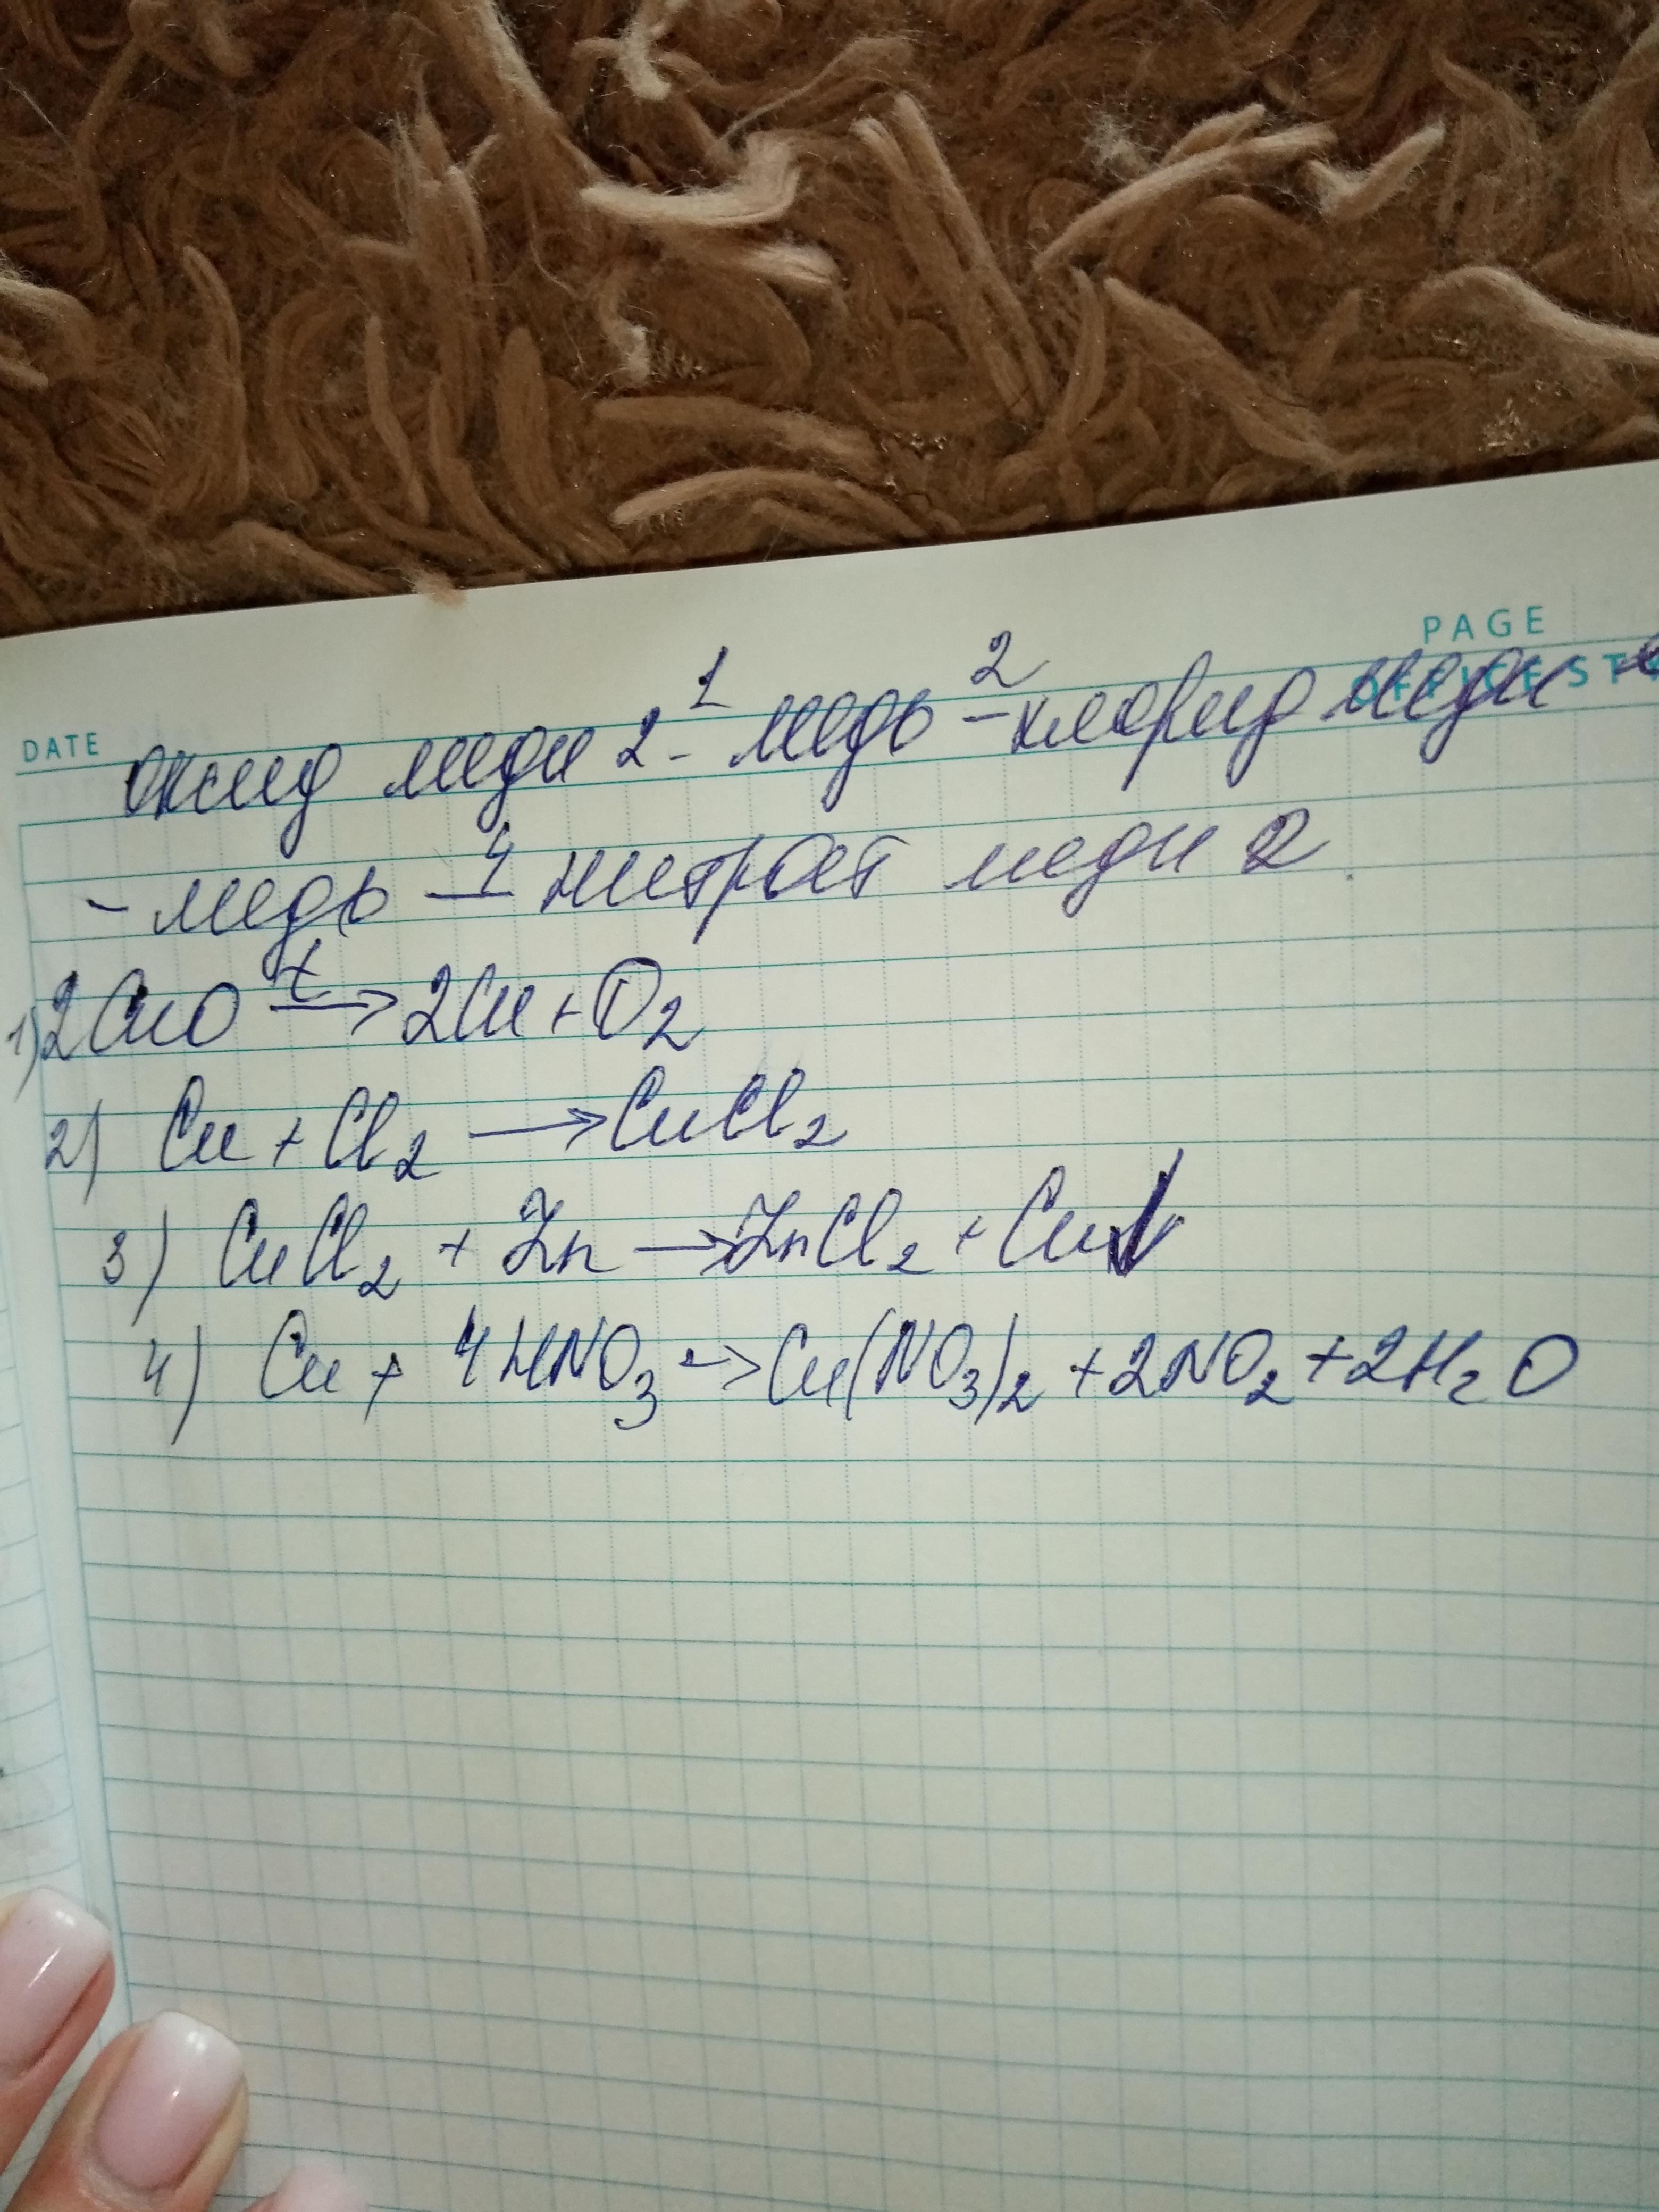 PAGE
OFFICE ST
DATE
1 2
оксид меди 2 - медь - хлорид меди
- медь - 4 нитрат меди 2.
1) 2CuO t → 2Cu + O2
2) Cu + Cl2 → CuCl2
3) CuCl2 + Zn → ZnCl2 + Cu↓
4) Cu + 4HNO3 → Cu(NO3)2 + 2NO2 + 2H2O